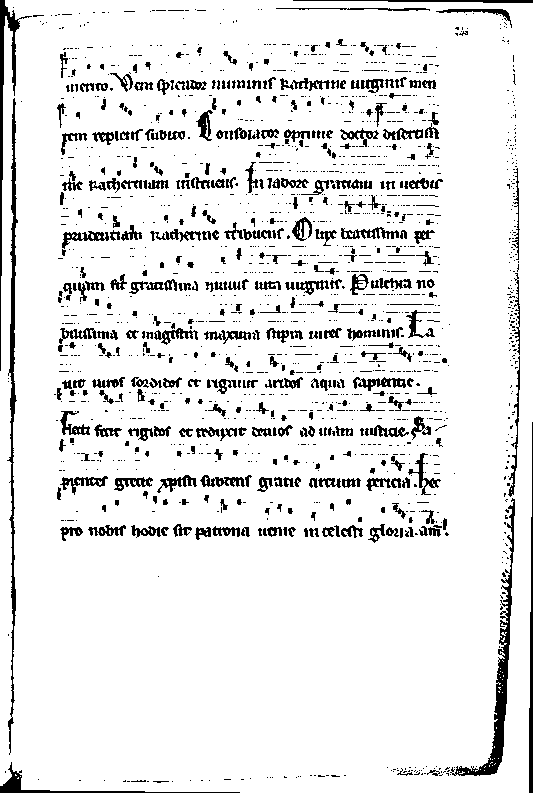 merito. Veni splendor numinis katherine uirginis men
tem repleris subito. Consolator optime doctor disertissi
me katherinam instruens. In labore gratiam in uerbis
prudentiam katherine tribuens. O lux beatissima per
quam fit gratissima huius uita uirginis. Pulchra no
bilissima et magistra maxima supra uires hominis. La
uit uiros sordidos et rigauit aridos aqua sapientie.
Flecti fecit rigidos et reduxit deuios ad uiam iusticie. Sa
pientes grecie xpisti subdens gratie artium pericia. hec
pro nobis hodie sit patrona uenie in celesti gloria. am̅.